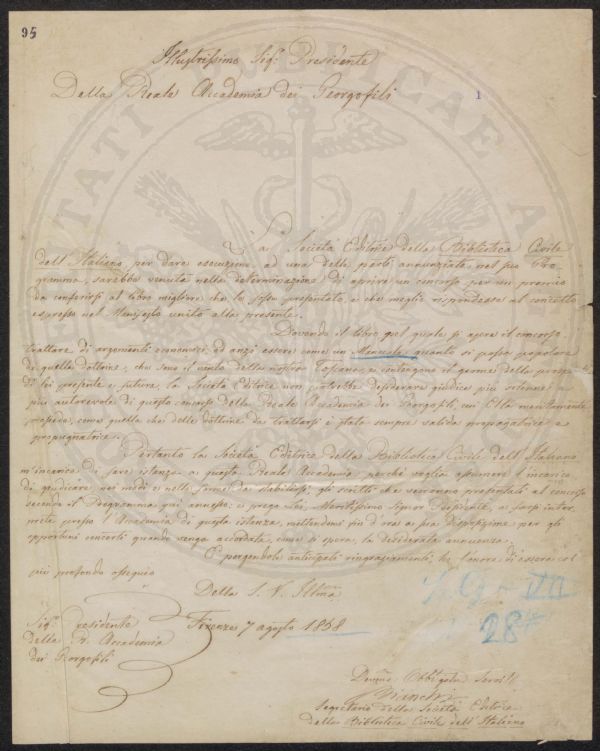 95
Illustrissimo Sig.r Presidente
1
Della Reale Accademia dei Georgofili
La Società Editrice della Biblioteca Civile
dell'Italiano, per dare esecuzione ad una delle parti annunziate nel suo Pro-
gramma, sarebbe venuta nella determinazione di aprire un concorso per un premio
da conferirsi al libro migliore che le fosse presentato, e che meglio rispondesse al concetto
espresso nel Manifesto unito alla presente.
Dovendo il libro pel quale si apre il concorso
trattare di argomenti economici, ed anzi essere come un Manuale, quanto si possa popolare
di quelle dottrine, che sono il vanto della nostra Toscana, e contengono il germe della prospe-
rità presente e futura, la Società Editrice non potrebbe desiderare giudice più idoneo e
più autorevole di questo concorso della Reale Accademia dei Georgofili, cui Ella meritamente
presiede, come quella che delle dottrine da trattarsi è stata sempre valida propagatrice e
propugnatrice.
Pertanto la Società Editrice della Biblioteca Civile dell'Italiano
m'incarica di fare istanza a questa Reale Accademia, perchè voglia assumere l'incarico
di giudicare nei modi e nelle forme da stabilirsi, gli scritti che verranno presentati al concorso
secondo il Programma qui annesso: e prego Lei, Signor Presidente, a farsi inter-
prete presso l'Accademia di questa istanza, mettendomi fin d'ora a sua disposizione per gli
opportuni concerti quando venga accordata, come si spera, la desiderata annuenza.
E porgendole anticipati ringraziamenti, ho l'onore di essere col
più profondo ossequio
Della S. V. Ill.ma
Sig.r Presidente
Firenze 7 agosto 1858
Della R. Accademia
dei Georgofili
28
Devmo Obbligato Servit.
Bianchi
Segretario della Società Editrice
della Biblioteca Civile dell'Italiano